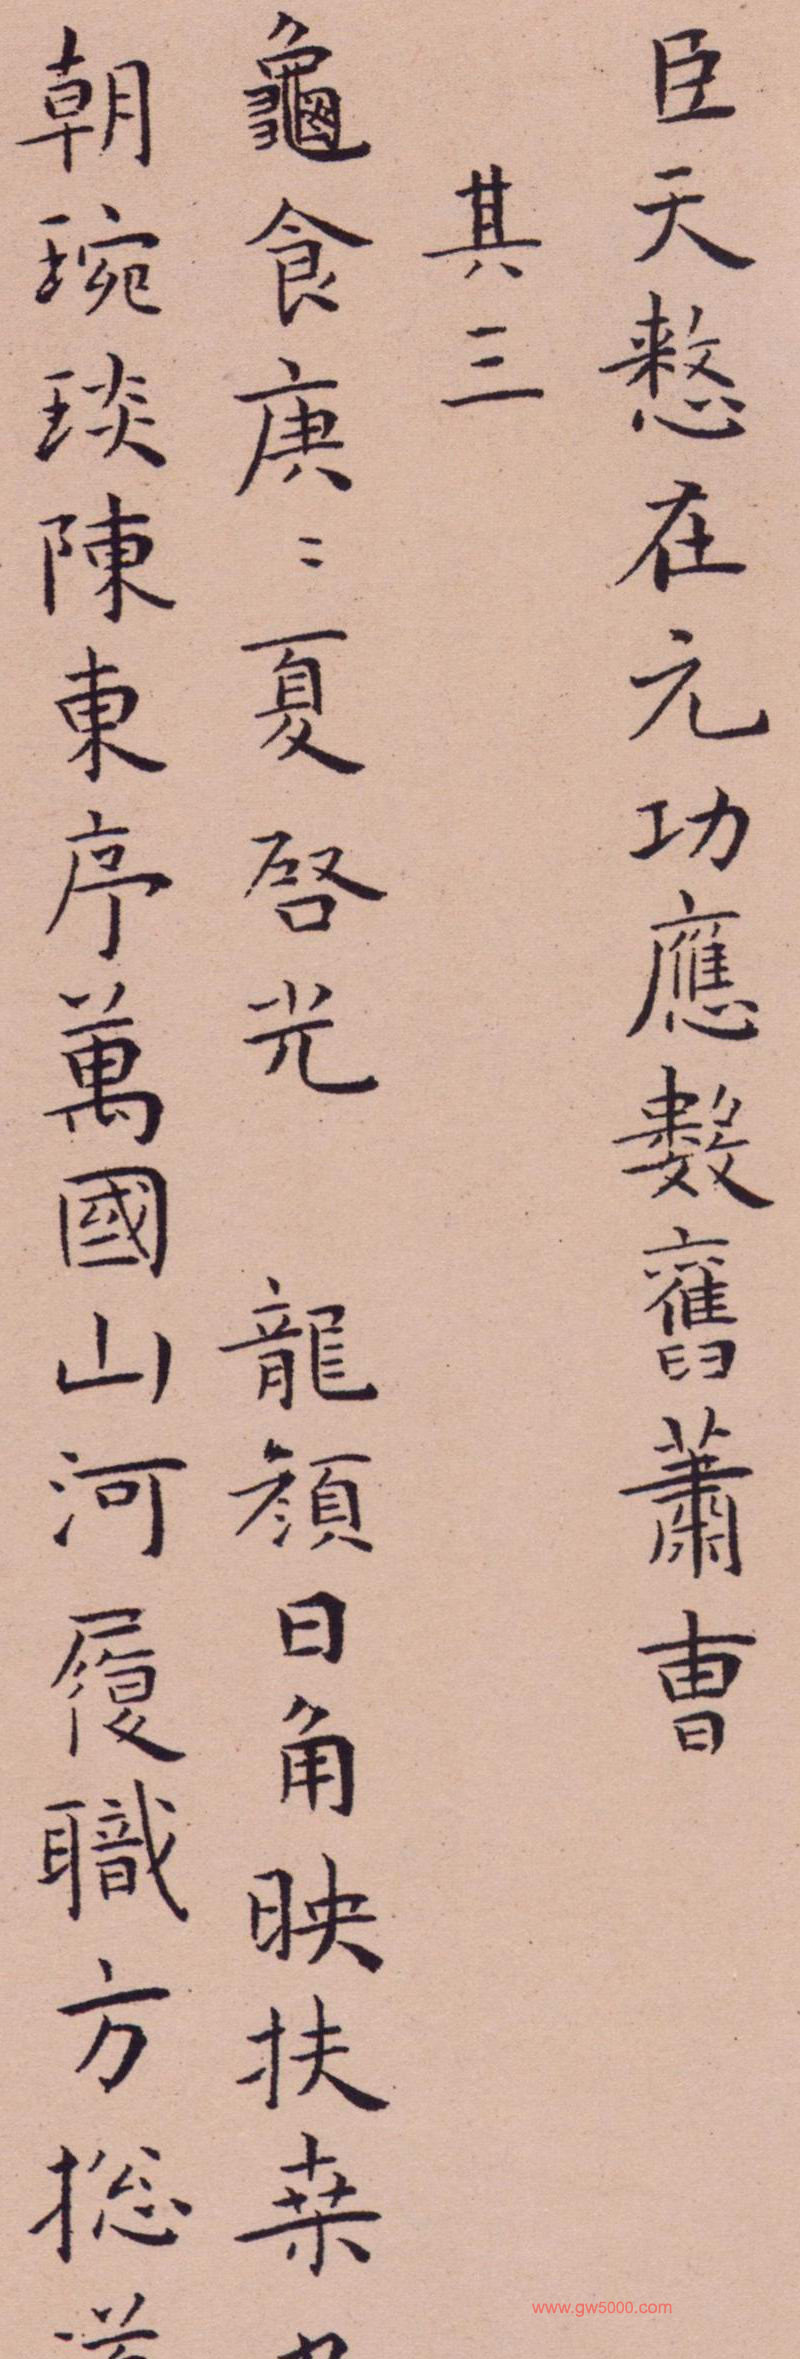 臣天憖在元功應數舊蕭曹
其三
龜食庚〻夏啓光　龍顏日角映扶桒
朝琬琰陳東序萬國山河履職方揔
www.gw5000.com